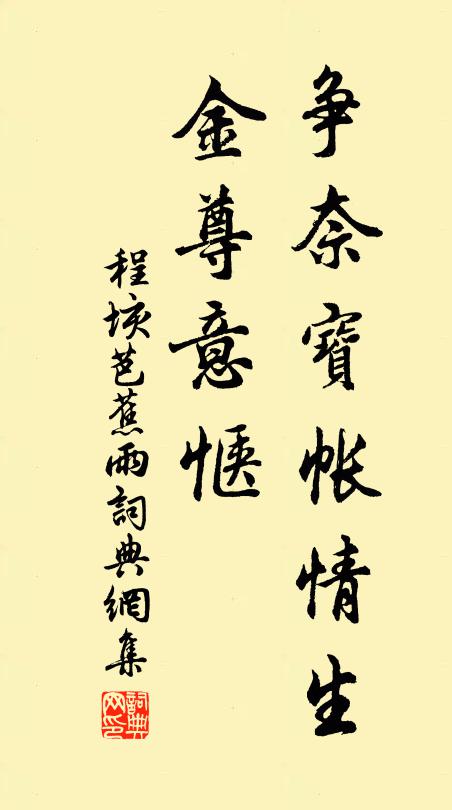 争奈寶帳情生
金尊意惬
程垓芭蕉雨詞典網集
詞典
网印